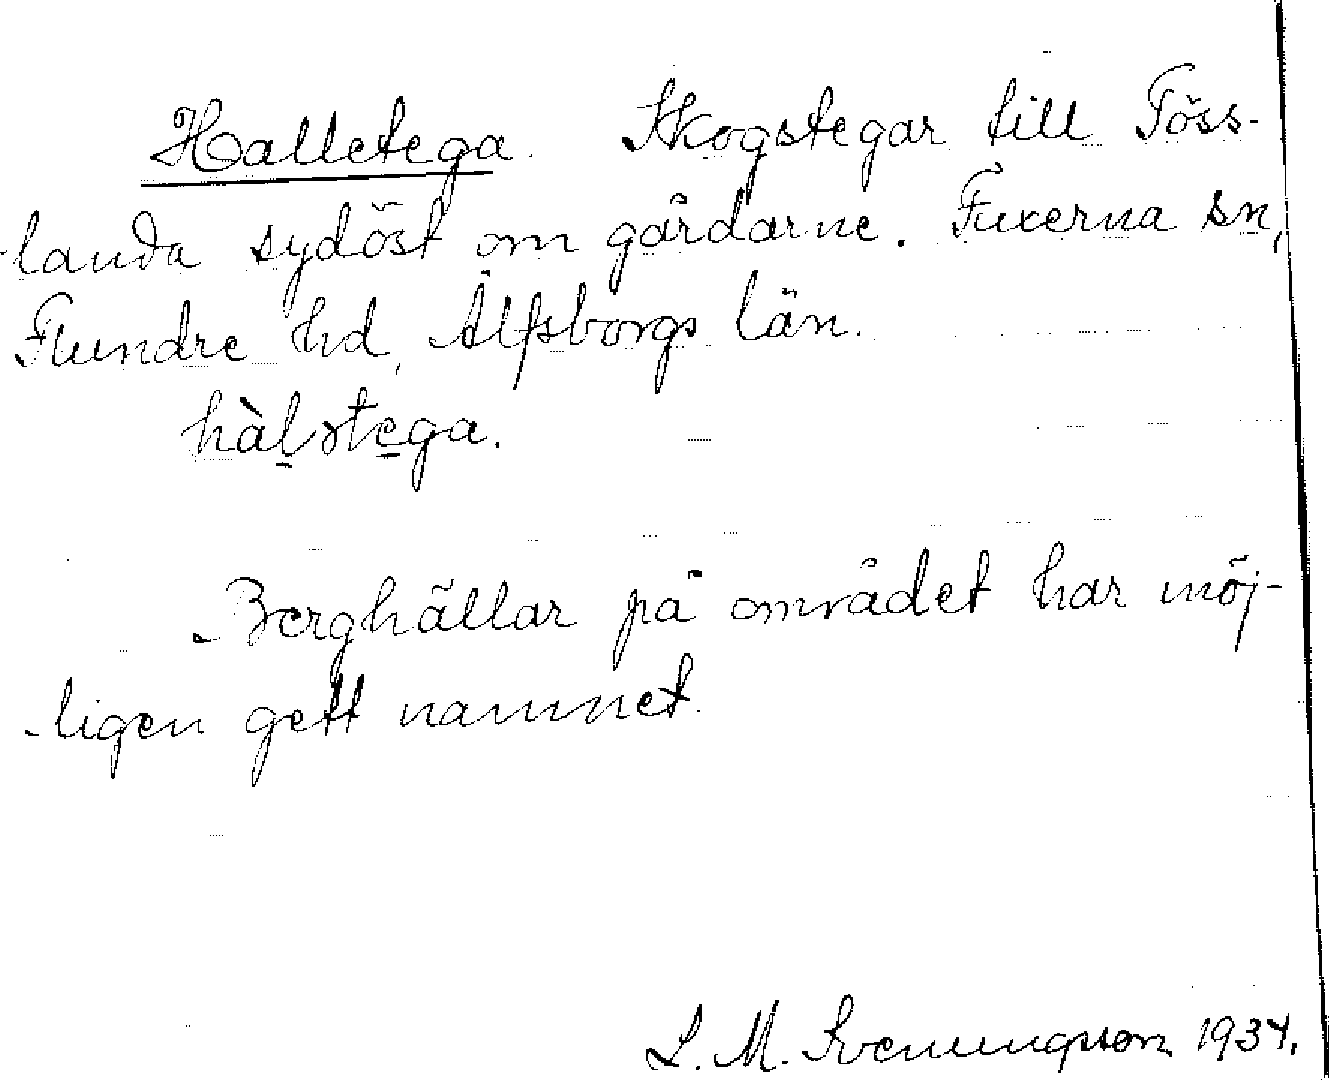 Halletega. Skogstegar till Töss-
landa sydöst om gårdarne. Fuxerna sn,
Flundre hd, Älfsborgs län.
hàlstega.
Berghällar på området har möj-
-ligen gett namnet.
L. M. Svenungsson 1934.